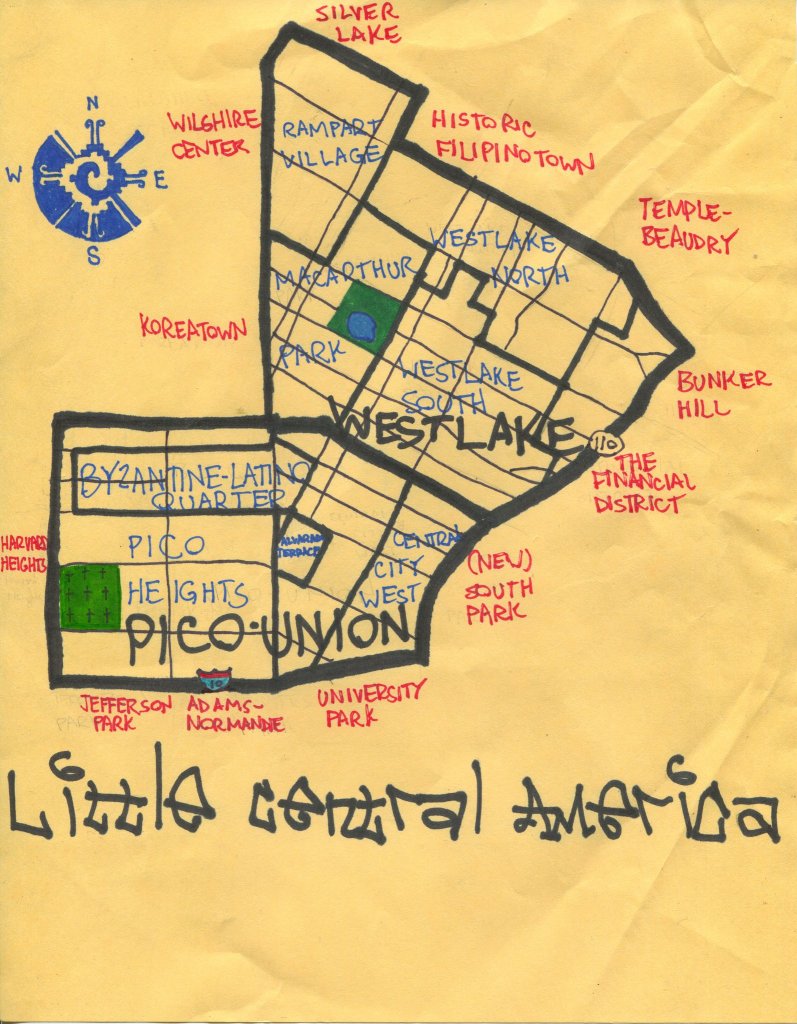 SILVER
LAKE
N
W
E
S
WILSHIRE
CENTER
RAMPART
VILLAGE
HISTORIC
FILIPINOTOWN
TEMPLE-
BEAUDRY
WESTLAKE
NORTH
MACARTHUR
PARK
KOREATOWN
WESTLAKE
SOUTH
BUNKER
HILL
WESTLAKE
110
THE
FINANCIAL
DISTRICT
BYZANTINE-LATINO
QUARTER
HARVARD
HEIGHTS
PICO
HEIGHTS
ALVARADO
TERRACE
CENTRAL
CITY
WEST
(NEW)
SOUTH
PARK
PICO-UNION
10
JEFFERSON
PARK
ADAMS-
NORMANDIE
UNIVERSITY
PARK
Little Central America